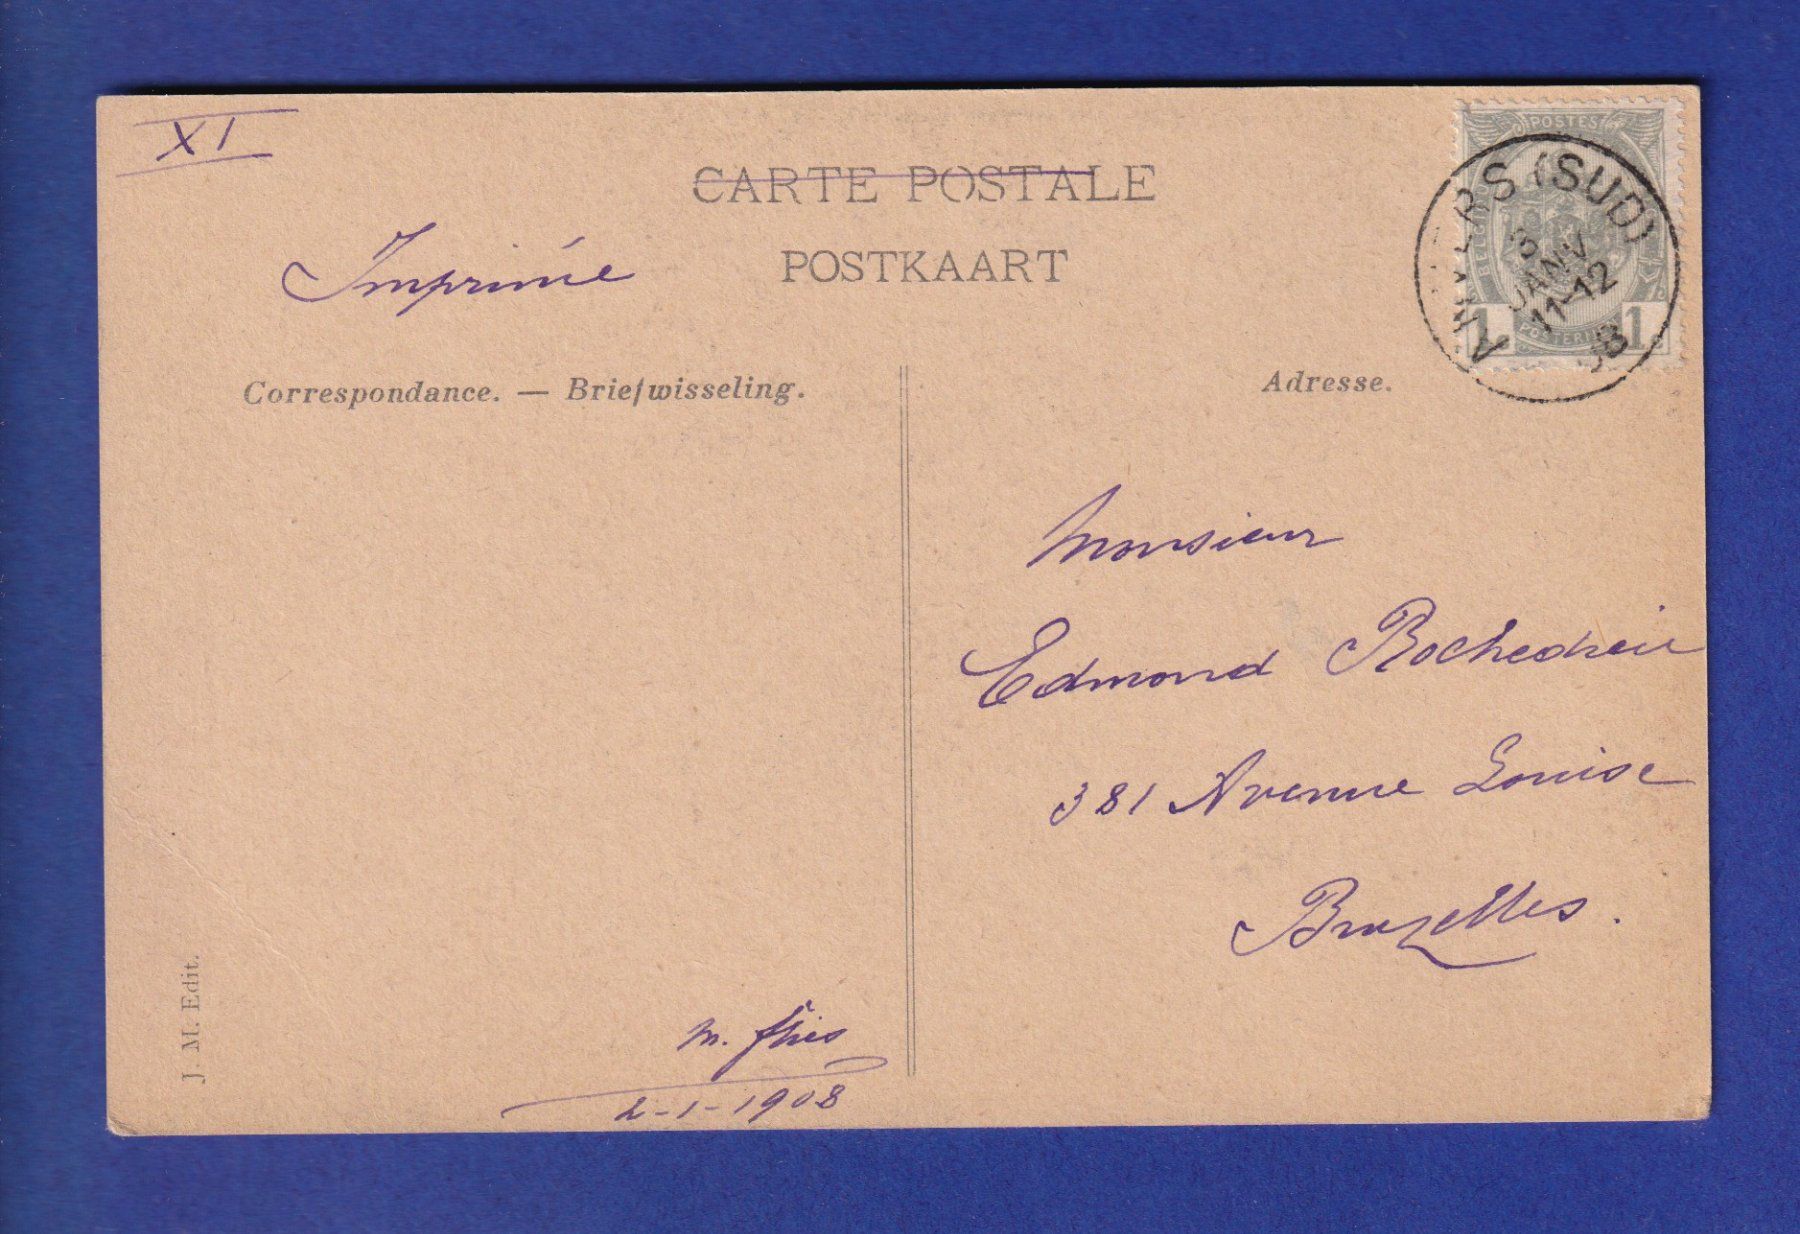 XI
CARTE POSTALE
Imprimée
POSTKAART
POSTES
BELGIQUE
1
1
POSTERIJEN
ANVERS (SUD)
3
JANV
11-12
08
Correspondance. — Briefwisseling.
Adresse.
Monsieur
Edmond Rochedieu
381 Avenue Louise
Bruxelles.
M.
2-1-1908
J. M. Edit.